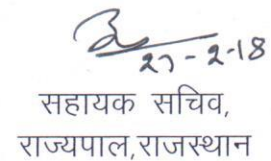 27-2-18
सहायक सचिव,
राज्यपाल,राजस्थान